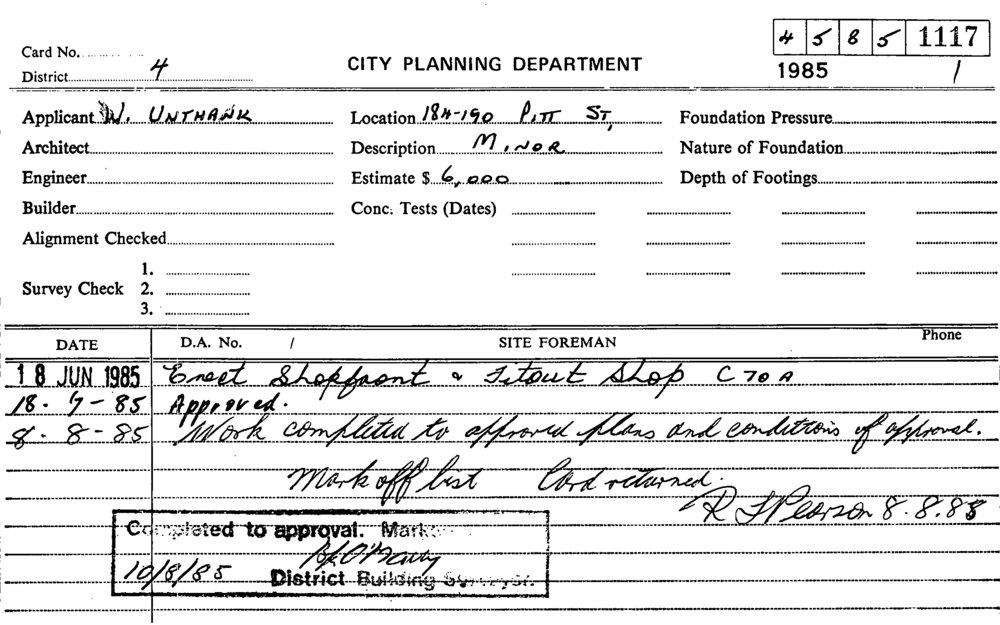 4 5 8 5 1117
Card No.
CITY PLANNING DEPARTMENT
1985 1
District 4
Applicant W. UNTHANK Location 184-190 PITT ST, Foundation Pressure
Architect Description MINOR Nature of Foundation
Engineer Estimate $ 6,000 Depth of Footings
Builder Conc. Tests (Dates)
Alignment Checked
1.
Survey Check 2.
3.
DATE D.A. No. / SITE FOREMAN Phone
18 JUN 1985 Erect Shopfront & Fitout Shop C 70 A
18 - 7 - 85 Approved.
8 - 8 - 85 Work completed to approved plans and conditions of approval.
Mark off list Card returned.
R Pearson 8.8.85
Completed to approval. Mark
10/8/85 District Building Surveyor.